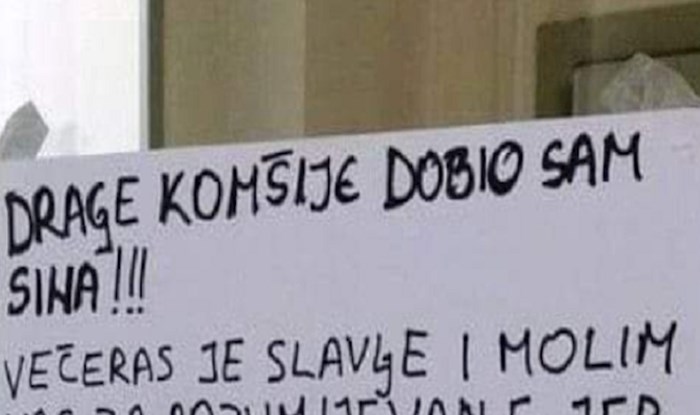 DRAGE KOMŠIJE DOBIO SAM
SINA!!!
VEČERAS JE SLAVLJE I MOLIM